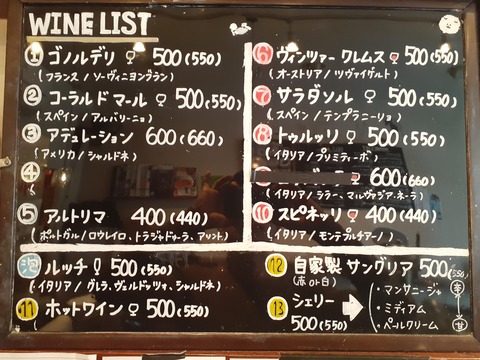 WINE LIST
① ゴノルデリ ♀ 500(550)
(フランス / ソーヴィニヨンブラン)
② コーラルドマール ♀ 500(550)
(スペイン / アルバリーニョ)
③ アデュレーション 600(660)
(アメリカ / シャルドネ)
④
⑤ アルトリマ 400(440)
(ポルトガル / ロウレイロ、トラジャドゥーラ、アリント)
⑥ ヴィンツァー クレムス ♀ 500(550)
(オーストリア / ツヴァイゲルト)
⑦ サラダソル ♀ 500(550)
(スペイン / テンプラニーリョ)
⑧ トゥルッリ ♀ 500(550)
(イタリア / プリミティーボ)
♀ 600(660)
(イタリア / ララー、マルヴァジア・ネーラ)
⑩ スピネッリ ♀ 400(440)
(イタリア / モンテプルチアーノ)
泡 ルッチ ♀ 500(550)
(イタリア / グレラ、ヴェルドゥッツォ、シャルドネ)
11 ホットワイン ♀ 500(550)
12 自家製 サングリア 500(550)
(赤 or 白)
13 シェリー
500(550)
・マンサニージャ 辛
・ミディアム
・ペールクリーム 甘